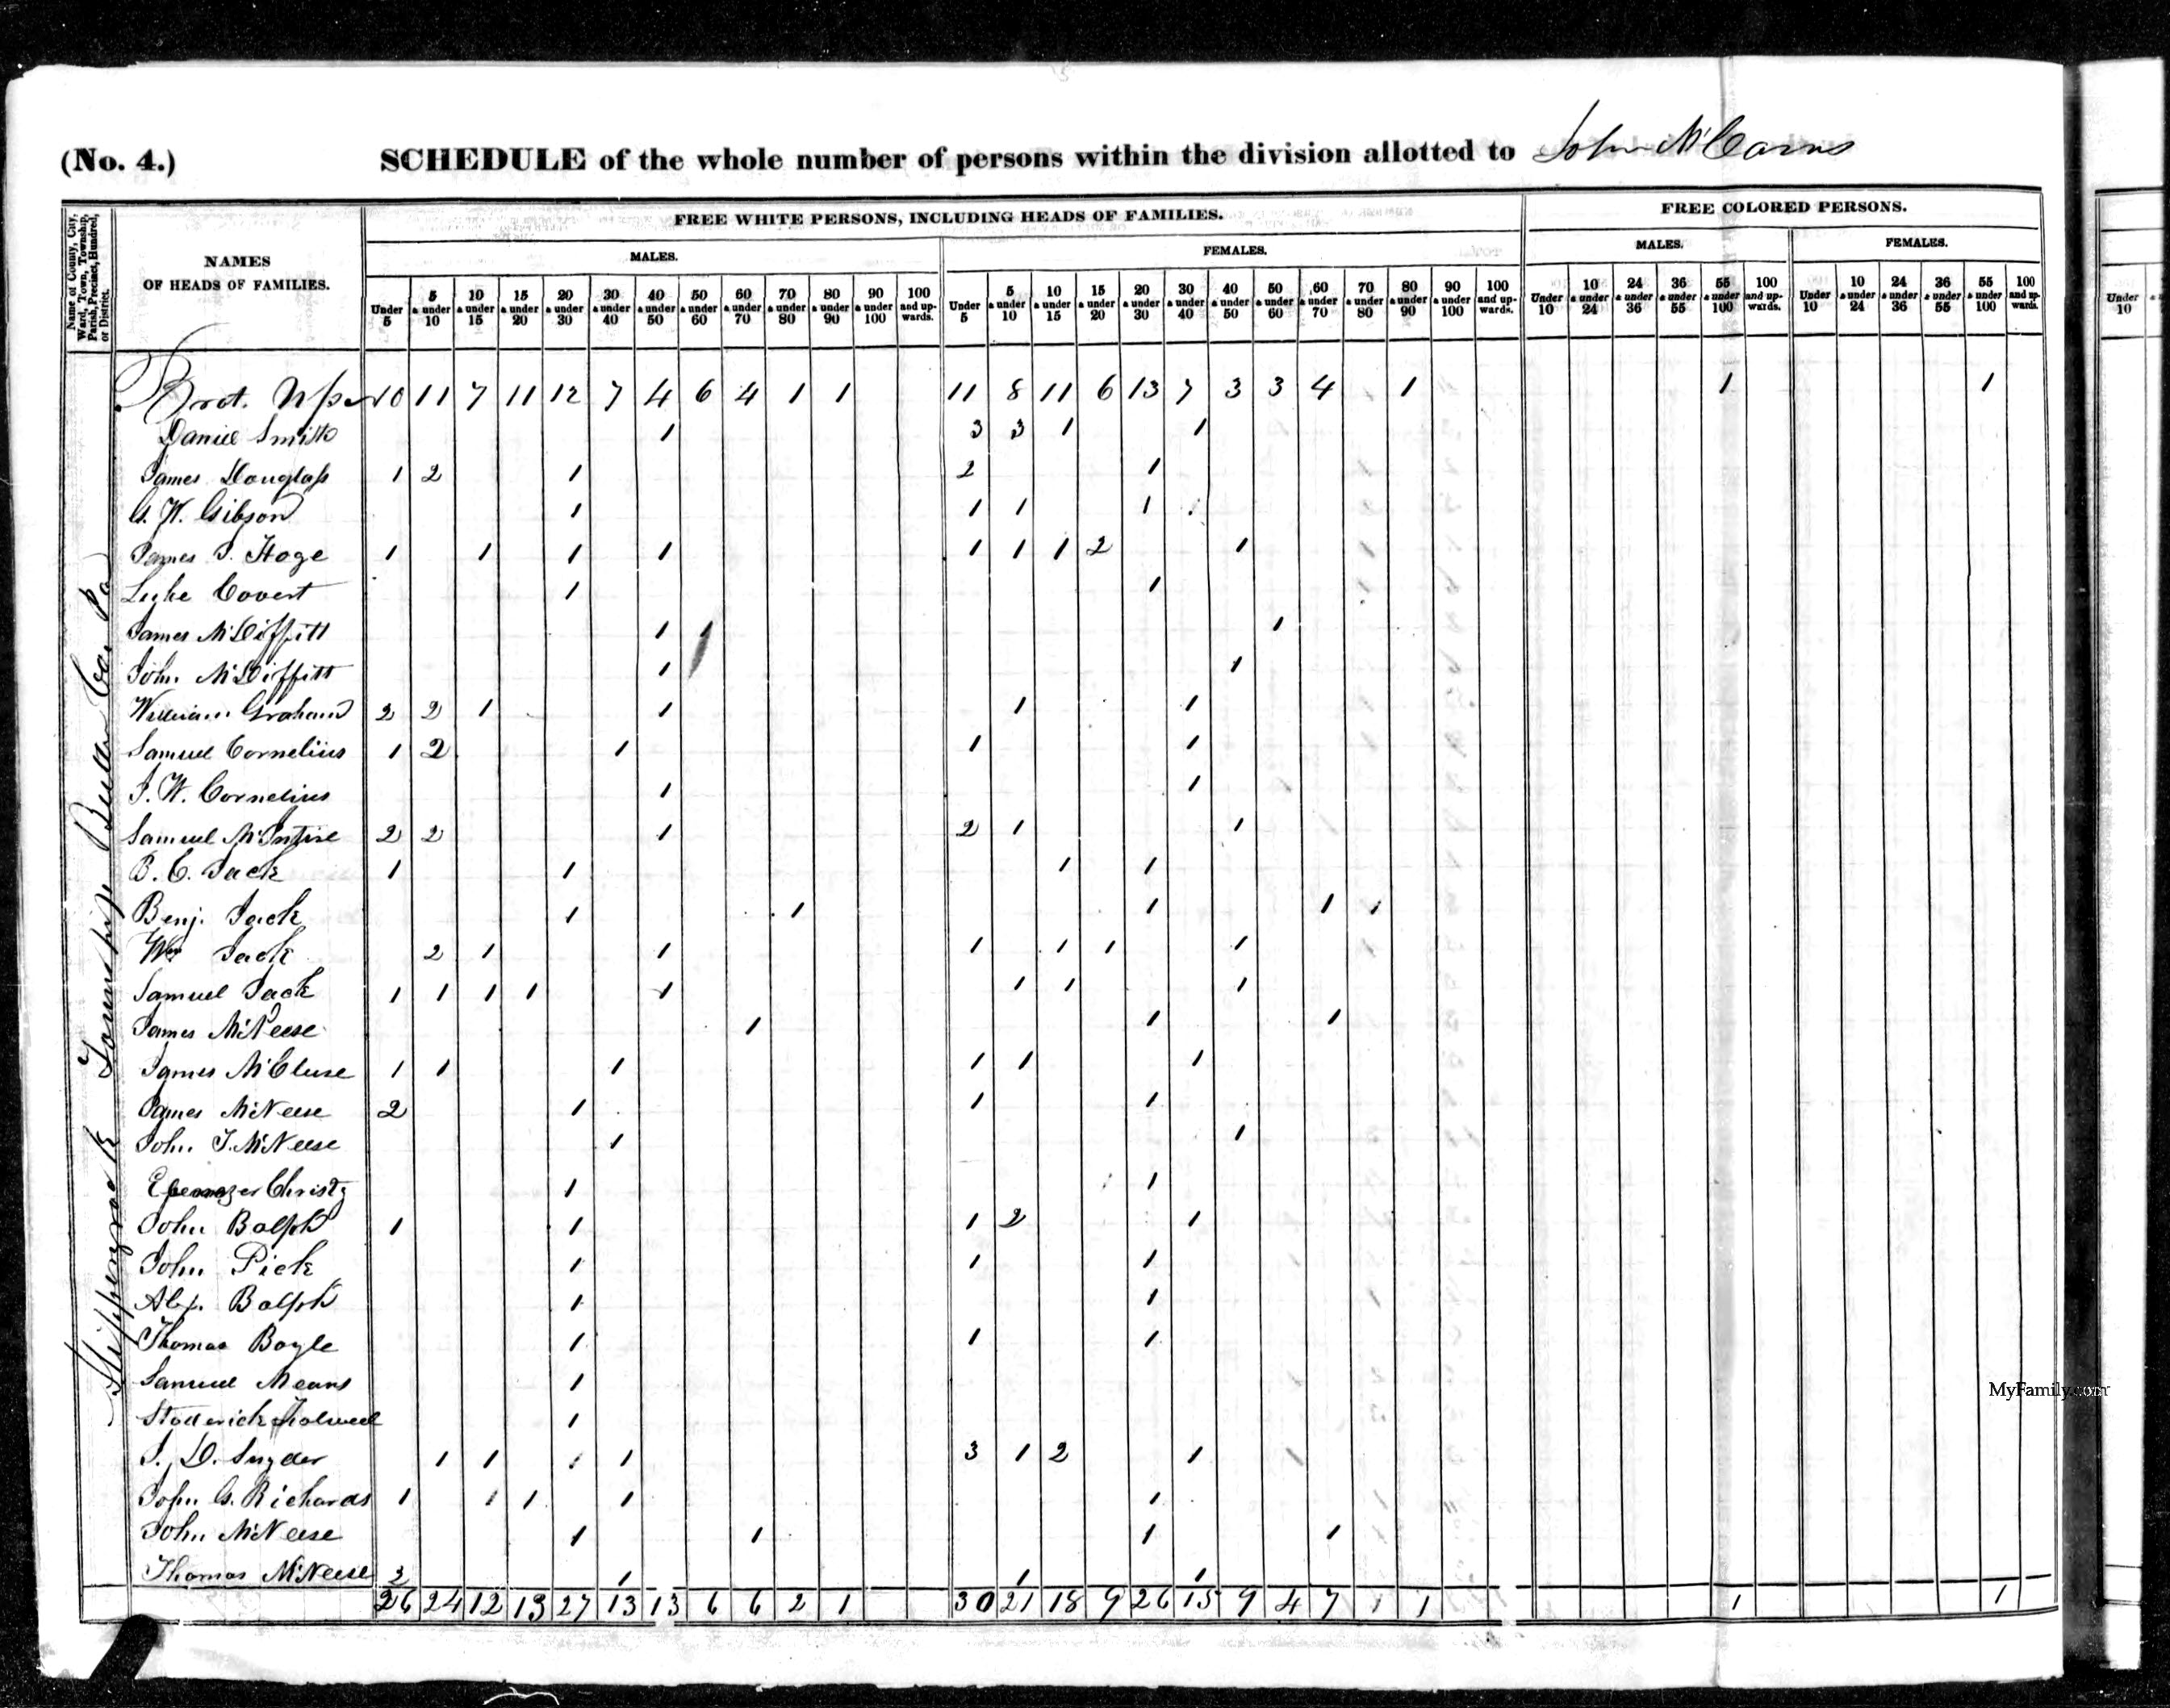 (No. 4.) SCHEDULE of the whole number of persons within the division allotted to John McCarns
Name of County, City, Ward, Town, Township, Parish, Precinct, Hundred, or District.
NAMES OF HEADS OF FAMILIES.
FREE WHITE PERSONS, INCLUDING HEADS OF FAMILIES.
FREE COLORED PERSONS.
MALES. FEMALES. MALES. FEMALES.
Under 5 5 & under 10 10 & under 15 15 & under 20 20 & under 30 30 & under 40 40 & under 50 50 & under 60 60 & under 70 70 & under 80 80 & under 90 90 & under 100 100 and upwards. Under 5 5 & under 10 10 & under 15 15 & under 20 20 & under 30 30 & under 40 40 & under 50 50 & under 60 60 & under 70 70 & under 80 80 & under 90 90 & under 100 100 and upwards. Under 10 10 & under 24 24 & under 36 36 & under 55 55 & under 100 100 and upwards. Under 10 10 & under 24 24 & under 36 36 & under 55 55 & under 100 100 and upwards. Under 10
Slippery rock Township Butler Co. Pa
Brot. Up 10 11 7 11 12 7 4 6 4 1 1 11 8 11 6 13 7 3 3 4 1 1 1
Daniel Smith 1 3 3 1 1
James Douglass 1 2 1 2 1
G. W. Gibson 1 1 1 1
James Hoge 1 1 1 1 1 1 1 2 1
Luke Covert 1 1
James McDiffitt 1 1 1
John McDiffitt 1 1
William Graham 2 2 1 1 1 1
Samuel Cornelius 1 2 1 1 1
J. W. Cornelius 1 1
Samuel McIntire 2 2 1 2 1 1
B. C. Jack 1 1 1 1
Benj. Jack 1 1 1 1 1
Wm Jack 2 1 1 1 1 1 1
Samuel Jack 1 1 1 1 1 1 1 1
James McNeese 1 1 1
James McClure 1 1 1 1 1 1
James McNeese 2 1 1 1
John T. McNeese 1 1
Ebenezer Christy 1 1
John Bolph 1 1 1 2 1
John Pick 1 1 1
Alex. Bolph 1 1
Thomas Boyle 1 1 1
Samuel Means 1
1
J. D. Snyder 1 1 1 1 3 1 2 1
John G. Richards 1 1 1 1 1
John McNeese 1 1 1 1
Thomas McNeese 3 1 1 1
26 24 12 13 27 13 13 6 6 2 1 30 21 18 9 26 15 9 4 7 1 1 1 1
MyFamily.com